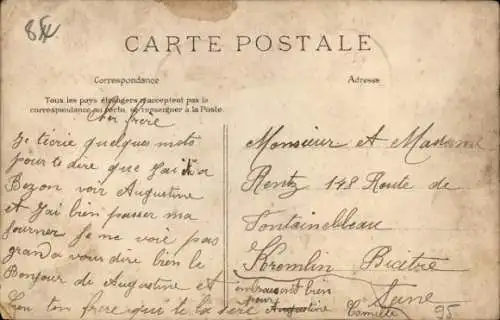 CARTE POSTALE
Correspondance
Adresse
Tous les pays étrangers n'acceptent pas la
correspondance au recto, se renseigner à la Poste.
Cher frère
Je técrie quelques mots
pour te dire que J'ai
Bezon voir Augustine
et J'ai bien passer ma
Journer Je ne voie pas
grand a vous dire bien le
Bonjour de Augustine et
ton frère qui te
Monsieur et Madame
Rentz 148 Route de
Fontainebleau
Kremlin Bicètre
Seine
bien
pour Augustine
Camille
95